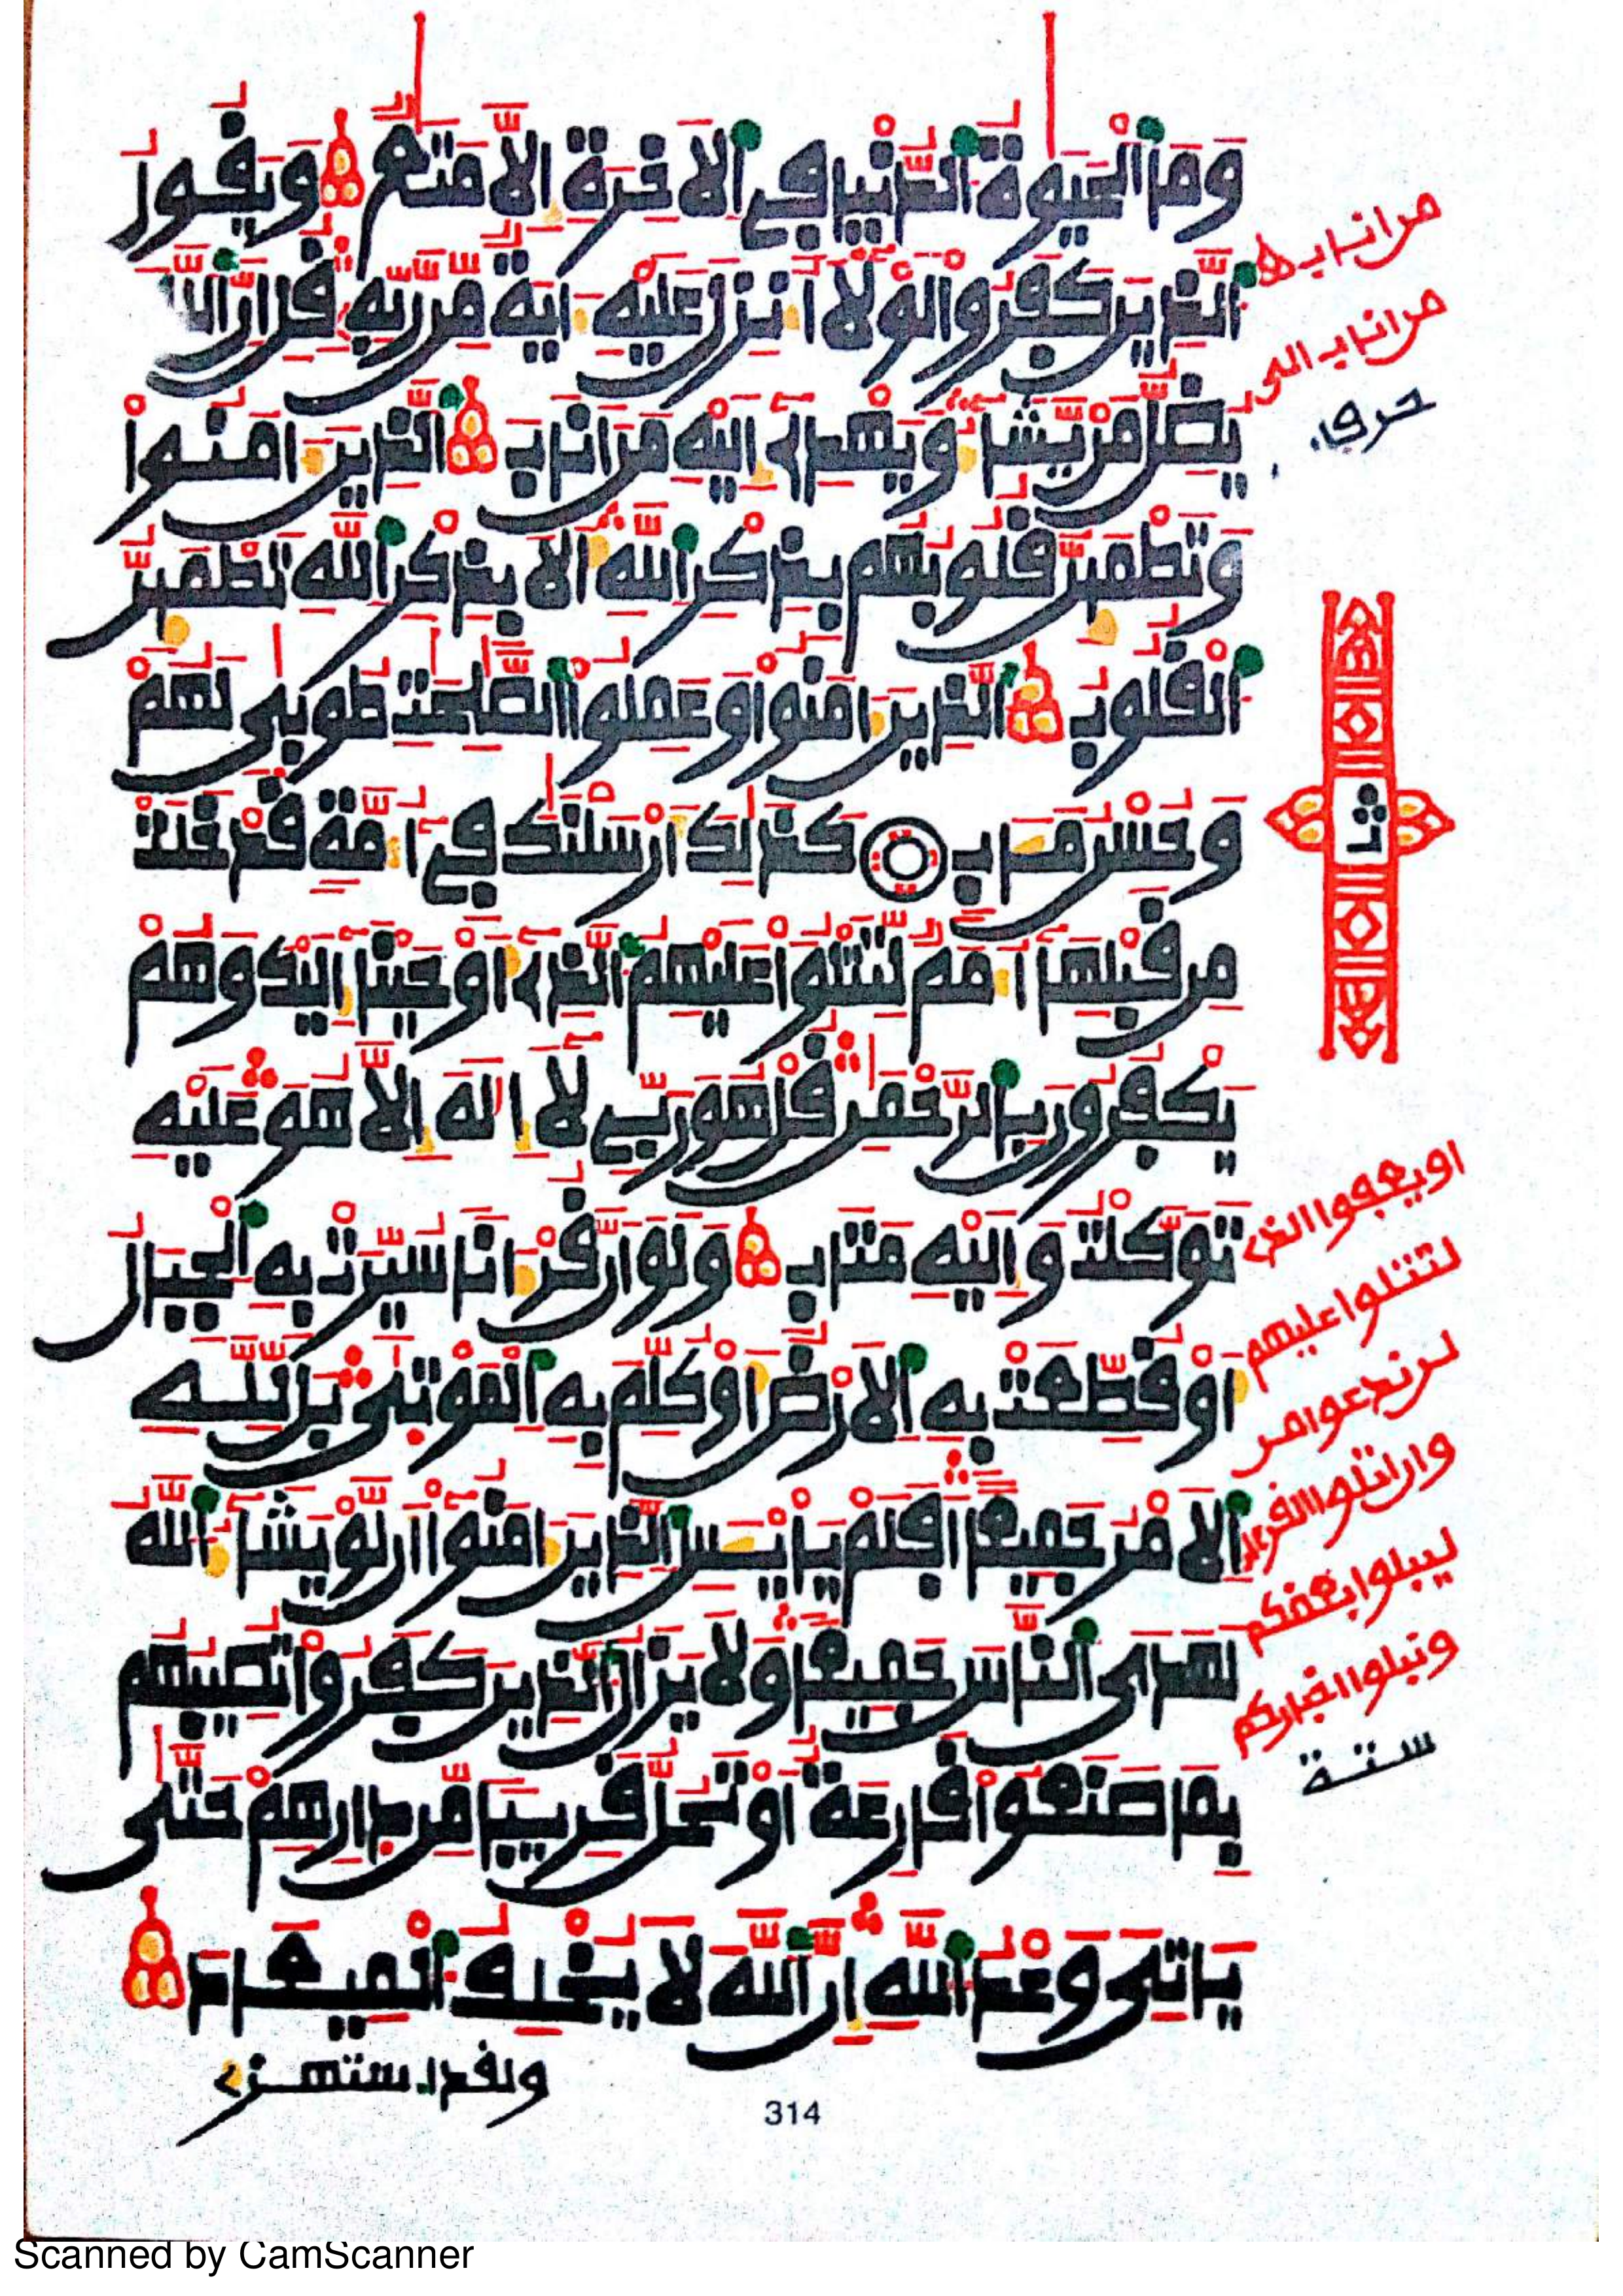 وما الحيوة الدنيا في الاخرة الا متع ويقول
الذين كفروا لولا انزل عليه اية من ربه قل ان الله
يضل من يشاء ويهدي اليه من اناب الذين امنوا
وتطمين قلوبهم بذكر الله الا بذكر الله تطمين
القلوب الذين امنوا وعملوا الصلحت طوبى لهم
وحسن مـاب كذلك ارسلنك في امة قد خلت
من قبلها امم لتتلوا عليهم الذي اوحينا اليك وهم
يكفرون بالرحمن قل هو ربي لا اله الا هو عليه
توكلت واليه متاب ولو ان قرانا سيرت به الجبال
او قطعت به الارض او كلم به الموتى بل لله
الامر جميعا افلم يايـس الذين امنوا ان لو يشاء الله
لهدى الناس جميعا ولا يزال الذين كفروا تصيبهم
بما صنعوا قارعة او تحل قريبا من دارهم حتى
ياتي وعد الله ان الله لا يخلف الميعاد
ولقد استهزي
من اناب ه
من اناب الى
حرف
ثمن
او يعفوا الذي
لتتلوا عليهم
لن ندعوا من
وان اتلوا القران
ليبلوا بعضكم
ونبلوا اخباركم
ستة
314
Scanned by CamScanner